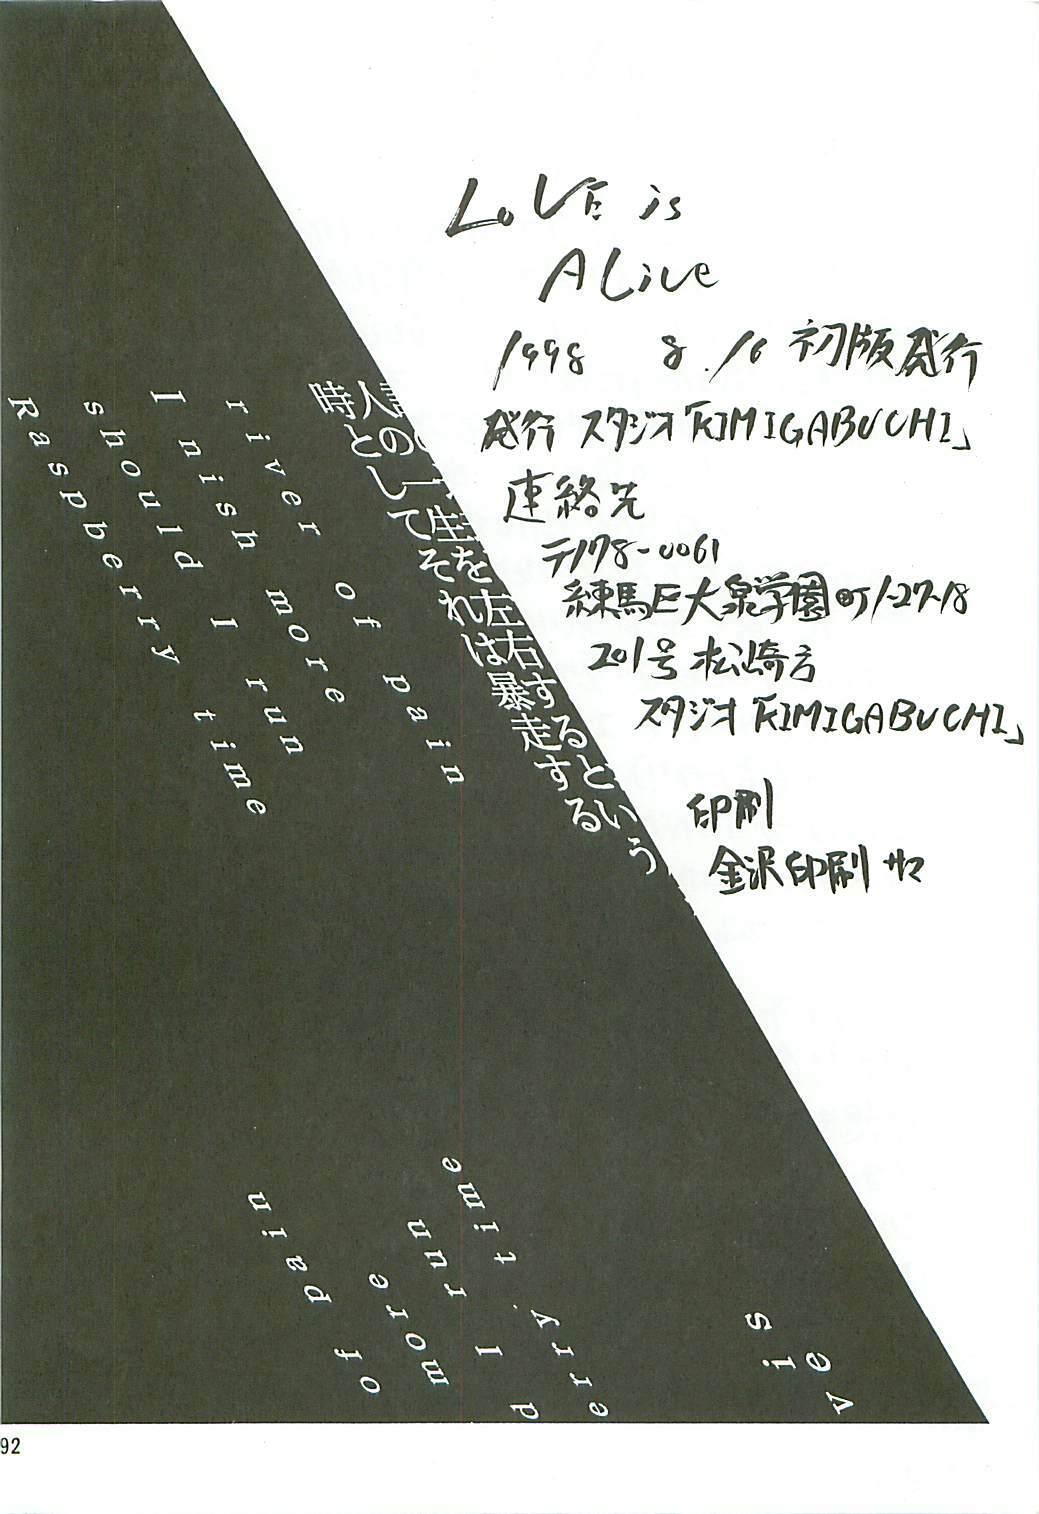 LoVE is
ALive
1998 8.16 初版発行
発行 スタジオ「KIMIGABUCHI」
連絡先
〒178-0061
練馬区大泉学園町1-27-18
201号 松崎方
スタジオ「KIMIGABUCHI」
印刷
金沢印刷サマ
人の一生を左右するという
時としてそれは暴走する
river of pain
I nish more
should I run
Raspberry time
ve
is
erry time
d I run
more
of pain
92